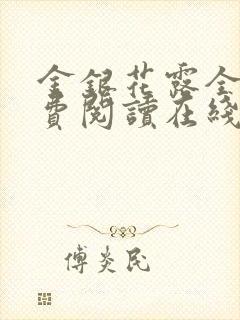 金銀花露全
費閱讀在綫
傅炎民